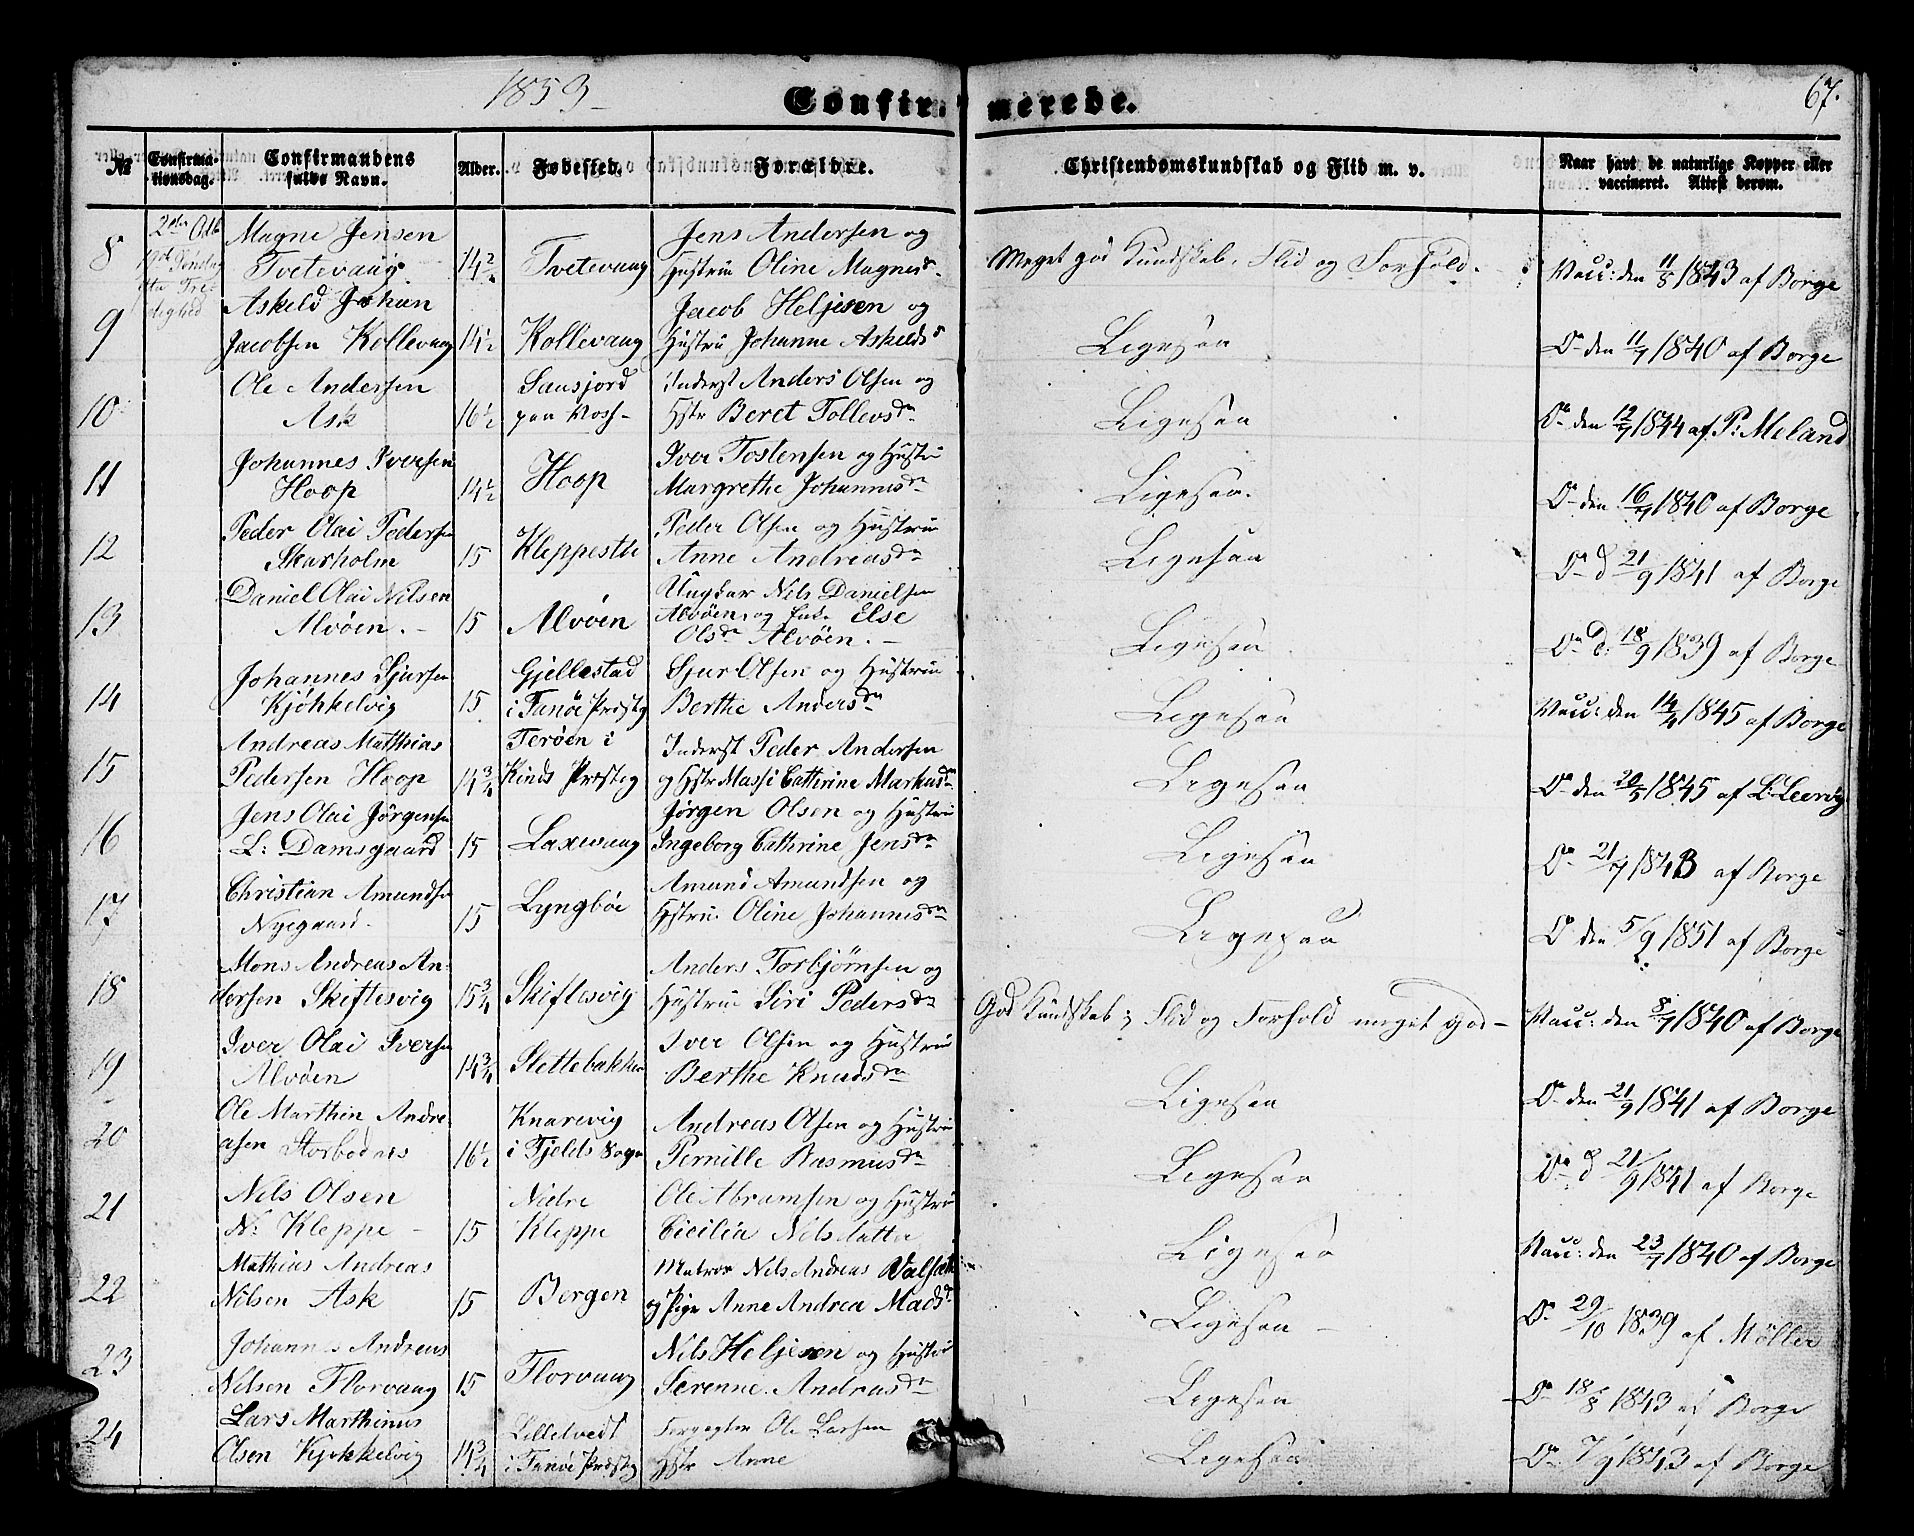 1853
67.
Confirmerede.
№
Confirmationsdag.
Confirmandens fulde Navn.
Alder.
Fødested.
Forældre.
Christendomskundskab og Flid m. v.
Naar havt de naturlige Kopper eller vaccineret. Attest derom.
8
2den Octb
Magne Jensen
Jens Andersen og
Tvetevaag
14 2/4
Tvetevaag
Hustru Oline Magnesdr
Meget god Kundskab, Flid og Forhold.
Vacc: den 11/8 1843 af Borge
9
Askeld Johan
Jacob Heljesen og
Jacobsen Kollevaag
14 1/2
Kollevaag
Hustru Johanne Askelds
Ligesaa
Do den 11/7 1840 af Borge
10
Ole Andersen
Sausjord
Inderst Anders Olsen og
Ask
16 1/2
paa Voss
Hstr Beret Tollevsdr
Ligesaa
Do den 12/7 1844 af P: Meland
11
Johannes Iversen
Iver Tostensen og Hustru
Hoop
14 1/2
Hoop
Margrethe Johannesdr
Ligesaa.
Do den 16/7 1840 af Borge
12
Peder Olai Pedersen
Peder Olsen og Hustru
Skarholm
15
Kleppestø
Anne Andreasdr
Ligesaa
Do d 21/9 1841 af Borge
13
Daniel Olai Nilsen
Ungkar Nils Danielsen
Alvøen.
15
Alvøen
Alvøen, og Enke Else
Olsdr Alvøen.
Ligesaa
Do d: 18/9 1839 af Borge
14
Johannes Sjursen
Gjellestad
Sjur Olsen og Hustru
Kjøkkelvig
15
i Fanöe Præstg
Berthe Andersdr
Ligesaa
Vacc: den 14/4 1845 af Borge
15
Andreas Matthias
Terøen i
Inderst Peder Andersen
Pedersen Hoop
14 3/4
Kinds Præsteg
og Hstr Massi Cathrine Markusdr
Ligesaa
Do den 20/5 1845 af L: Leervig
16
Jens Olai Jørgensen
Jørgen Olsen og Hustru
L: Damsgaard
15
Laxevaag
Ingeborg Cathrine Jensdr
Ligesaa
Do 21/7 1843 af Borge
17
Christian Amundsen
Amund Amundsen og
Nygaard.
15
Lyngbøe
Hstru Oline Johannesdr
Ligesaa
Do den 5/9 1851 af Borge
18
Mons Andreas An-
Anders Torbjørnsen og
dersen Skiftesvig
15 3/4
Skiftesvig
Hustru Siri Pedersdr
God Kundskab; Flid og Forhold meget god
Vacc: den 8/7 1840 af Borge
19
Iver Olai Iversen
Iver Olsen og Hustru
Alvøen
14 3/4
Slettebakken
Berthe Knudsdr
Ligesaa
Do den 21/9 1841 af Borge
20
Ole Marthin Andre
Knarevig
Andreas Olsen og Hustru
asen Storbodnes
16 1/2
i Fjelds Sogn
Pernille Rasmusdr
Ligesaa
Do d 21/9 1841 af Borge
21
Nels Olsen
Nedre
Ole Abramsen og Hustru
N: Kleppe
15
Kleppe
Cicilia Nilsdatter
Ligesaa
Vacc: den 23/7 1840 af Borge
22
Mathias Andreas
Matros Nils Andreas
Nilsen Ask
15
Bergen
og Pige Anne Andrea Madsdr
Ligesaa
Do 29/10 1839 af Möller
23
Johannes Andreas
Nils Heljesen og Hustru
Nilsen Florvaag
15
Florvaag
Serenne Andreasdr
Ligesaa
Do 18/8 1843 af Borge
24
Lars Marthinus
Lilletvedt
Ole Larsen
Olsen Kjøkkelvig
14 3/4
i Fanöe Præstg
Hstr Anne
Ligesaa
Do 7/9 1843 af Borge